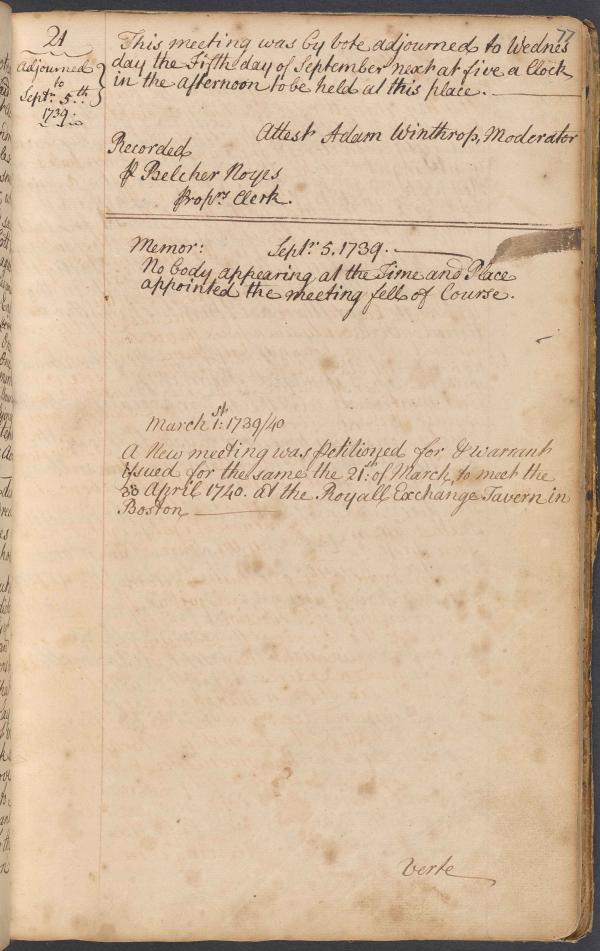 77
21
Adjourned
to
Septr. 5.th
1739.
This meeting was by vote adjourned to Wednes
day the Fifth day of September next at five a Clock
in the afternoon to be held at this place.
Attest Adam Winthrop, Moderator
Recorded
℘ Belcher Noyes
Proprs Clerk.
Memor: Septr. 5. 1739.
No body appearing at the Time and Place
appointed the meeting fell of Course.
March 1st: 1739/40
A New meeting was petitioned for & warrant
Issued for the same the 21st: of March, to meet the
April 1740. at the Royall Exchange Tavern in
Boston
Verte